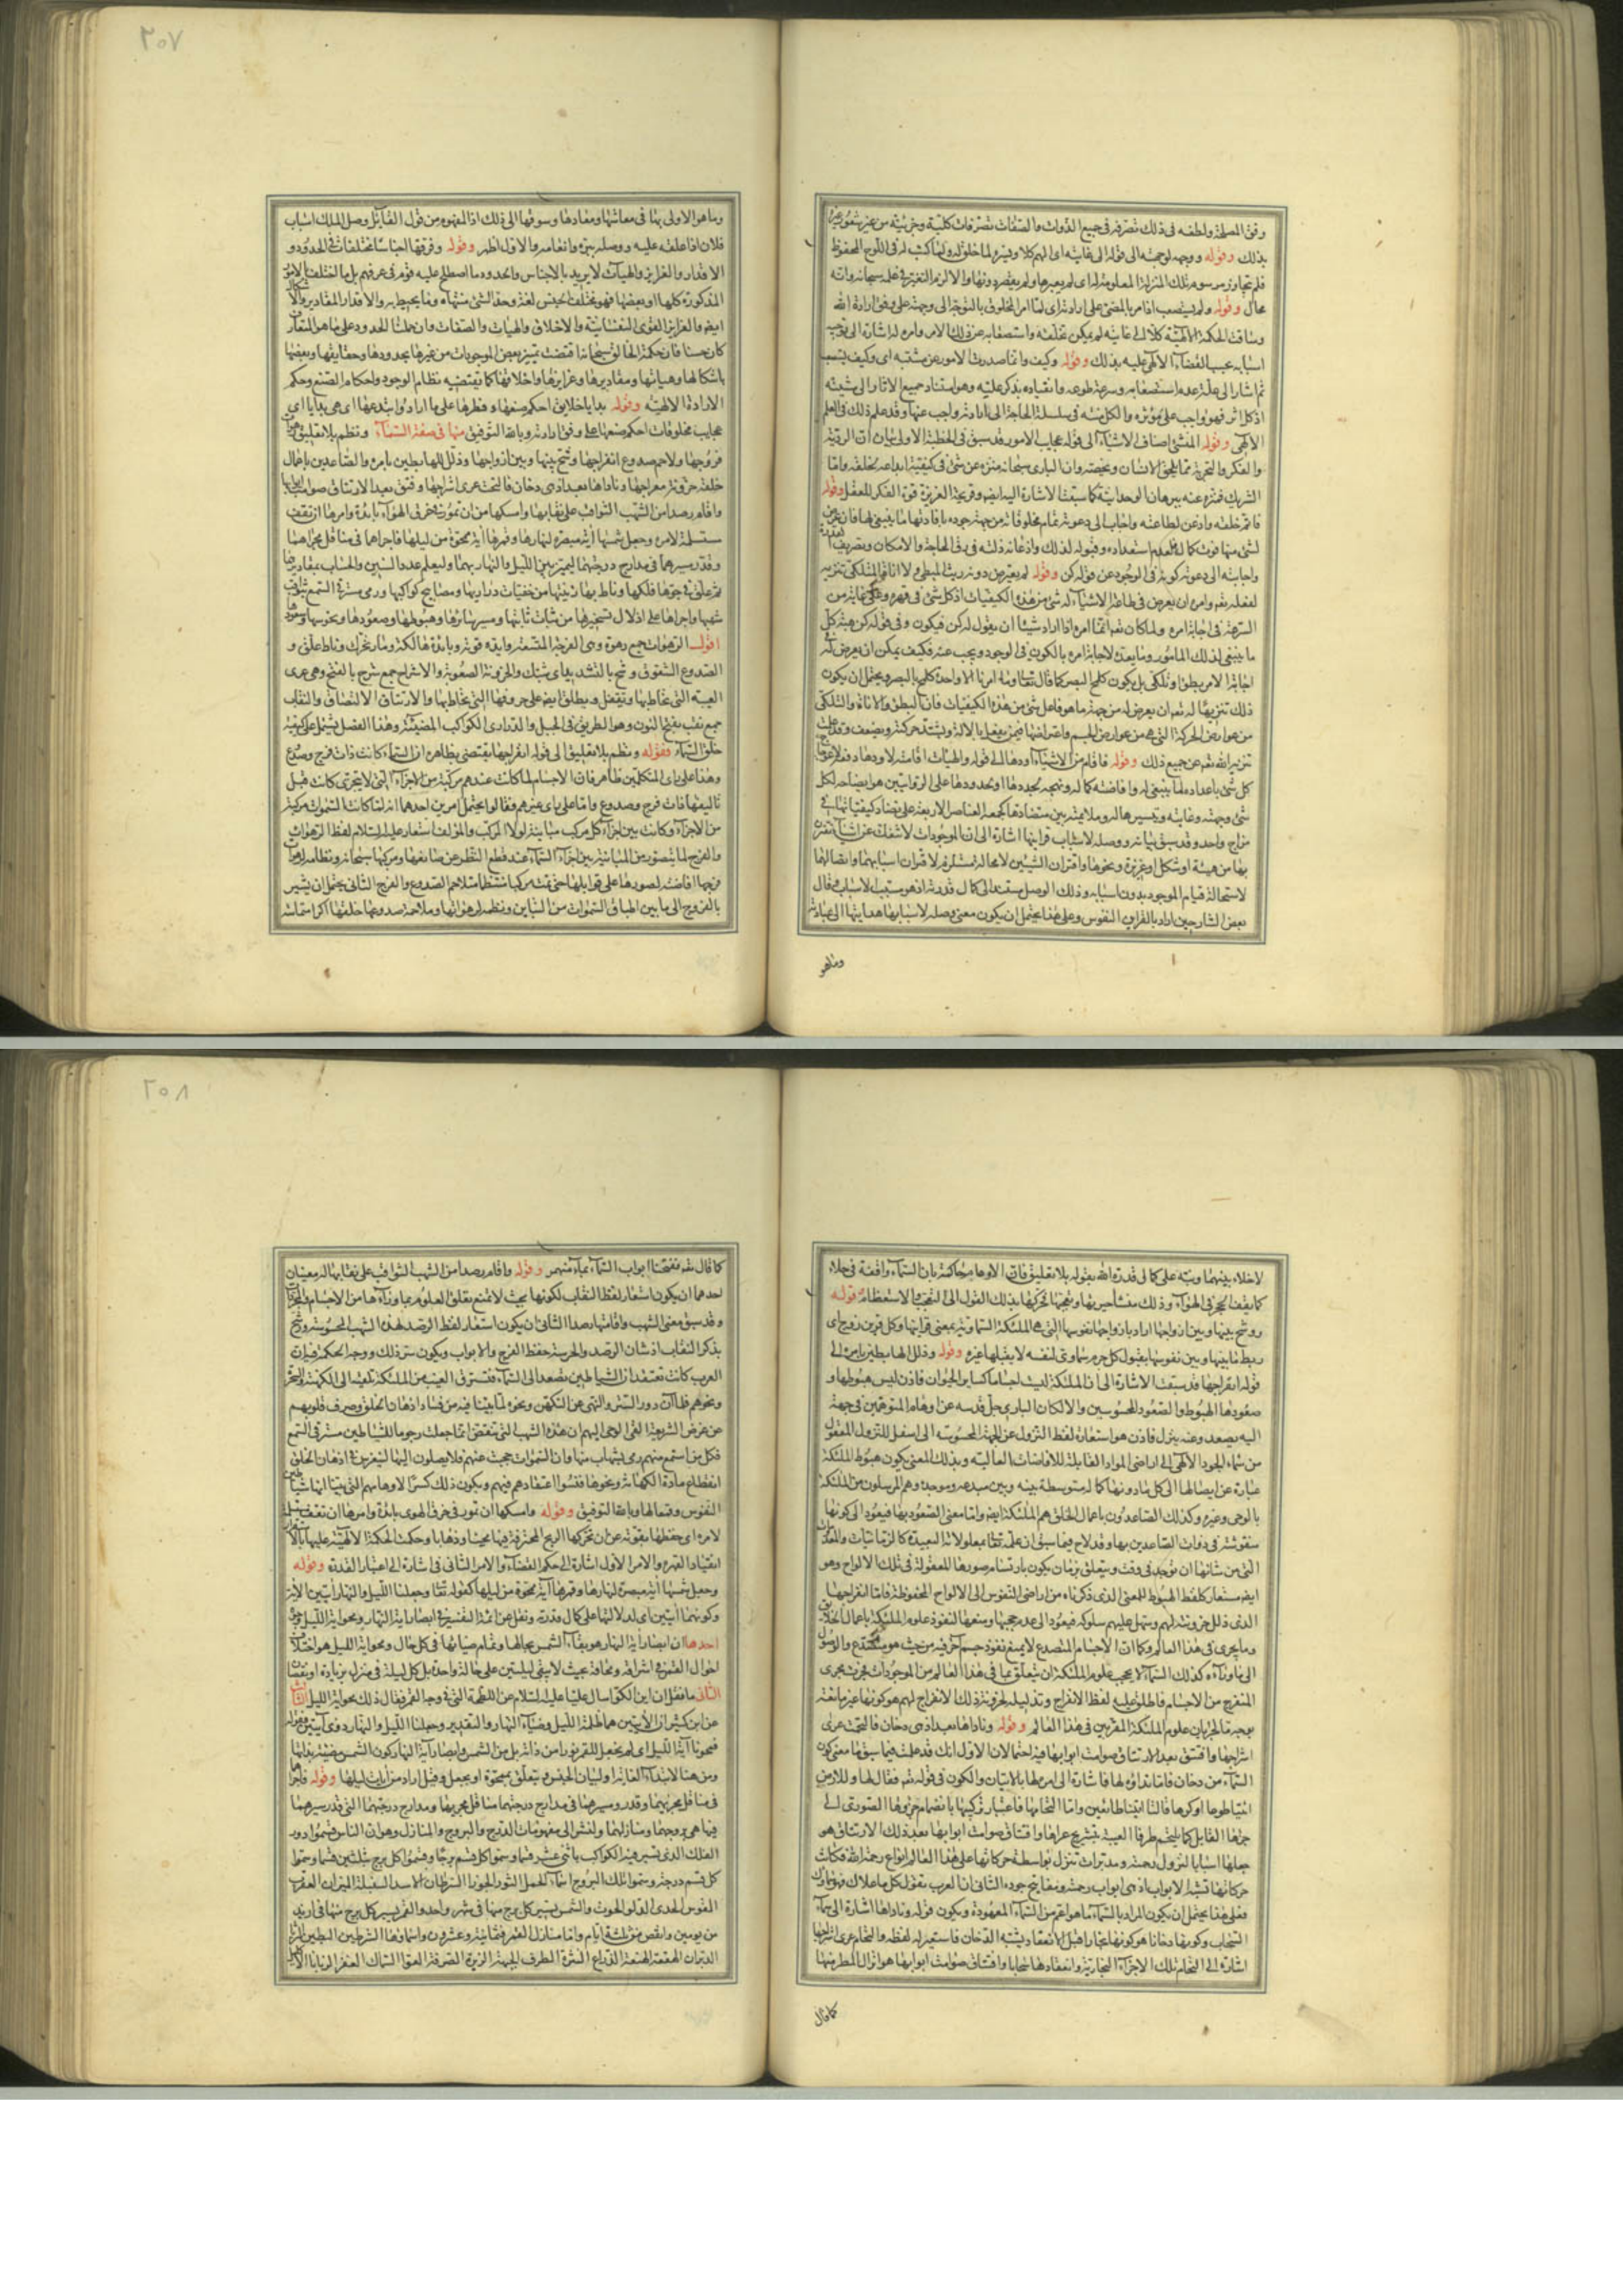 وفق المصلحة ولطفه فى ذلك تصرفه فى جميع الذوات والصفات تصرفات كلية وجزئية من غير شعور غيره
بذلك وقوله ووجهه لوجهته الى قوله الى غايته اى الهم كلا وقيره لما خلق له ولما كتب له فى اللوح المحفوظ
فلم يتجاوز مرسوم تلك المنزلة المعلومة له اى لم يعبرها ولم يقصر دونها والا لزم التغير فى علمه سبحانه وانه
محال وقوله ولم يستصعب اذ امر بالمضى على ارادته اى لما امر المخلوق بالتوجه الى وجهته على وفق ارادة الله
وساقت الحكمة الالهية كلا الى غايته لم يمكن تخلفه واستصعابه عن ذلك الامر وامره له اشارة الى توجيه
اسبابه بحسب القضاء الالهى عليه بذلك وقوله وكيف وانما صدرت الامور عن مشيته اى وكيف يستصعب
ثم اشار الى علة عدم استصعابه وسرعة طوعه وانقياده بذكر علته وهو استناد جميع الاثار الى مشيته
اذ كل اثر فهو واجب عن مؤثره والكل منته فى سلسلة الحاجة الى ارادته واجب عنها وقد علم ذلك فى العلم
الالهى وقوله المنشى اصناف الاشياء الى قوله عجايب الامور قد سبق فى الخطبة الاولى بيان ان الروية
والفكر والتجربة مما يلحق الانسان ويخصه وان البارى سبحانه منزه عن شئ فى كيفية ابداعه لخلقه واما
الشريك فمنزه عنه ببرهان الوحدانية كما سبقت الاشارة اليه ايضا وقريحة الغريزة قوة الفكر للعقل وقوله
فاتم خلقه واذعن لطاعته واجاب الى دعوته تمام مخلوقاته من جهة جوده بافادتها ما ينبغى لها فان عرض
لشئ منها فوت كمال فلعدم استعداده وقبوله لذلك واذعانه ذلته فى رق الحاجة والامكان وتصريف القدرة
واجابته الى دعوته كونه فى الوجود عن قوله كن وقوله لم يعترض دونه ريث المبطئ ولا اناة المتلكئ تنزيه
لفعله تعم وامره ان يعرض فى طاعة الاشياء له شئ من هذه الكيفيات اذ كل شئ فى قهره وعلى غاية من
السرعة فى اجابة امره ولما كان تعم انما امره اذا اراد شيئا ان يقول له كن فيكون وفى قوله كن هبة كل
ما ينبغى لذلك المامور وما يعده لاجابة امره بالكون فى الوجود ويجب عنه فكيف يمكن ان يعرض له
اجابة الامر بطؤ وتلكؤ بل يكون كلمح البصر كما قال تعا وما امرنا الا واحدة كلمح بالبصر ويحتمل ان يكون
ذلك تنزيها له تعم ان يعرض له من جهة ما هو فاعل شئ من هذه الكيفيات فان البطؤ والاناة والتلكؤ
من عوارض الحركة التى هى من عوارض الجسم
تنزيه الله تعم عن جميع ذلك وقوله فاقام من الاشياء اودها الى قوله والهيات اقامته لاودها
كل شئ باعداده لما ينبغى له وافاضة كماله ونهجه لحدودها
مزاج واحد وقد سبق بيانه ووصله لاسباب قراينها اشارة الى ان الموجودات لا تنفك عن اشياء تقترن
بها من هيئة او شكل او غريزة ونحوها واقتران الشيئين لا محالة مستلزم لاقتران اسبابهما واتصالهما
لاستحالة قيام الموجود بدون اسبابه وذلك الوصل مستند الى كمال قدرته اذ هو مسبب الاسباب وقال
بعض الشارحين اراد بالقراين النفوس وعلى هذا يحتمل ان يكون معنى وصله لاسبابها هدايتها الى عبادته
وما هو
٢٠٧
وما هو الاولى بها فى معاشها ومعادها وسوقها الى ذلك اذ المفهوم من قول القايل وصل الملك اسباب
فلان اذا علقه عليه ووصله ببره وانعامه والاول اظهر وقوله وفرقها اجناسا مختلفات فى الحدود و
الاقدار والغرايز والهيات لا يريد بالاجناس والحدود ما اصطلح عليه قوم فى عرفهم بل ما اختلف بالامور
المذكورة كلها او بعضها فهو مختلف الجنس لغة وحد الشئ منتهاه وما يحيط به والاقدار المقادير والاشكال
ايضا والغرايز القوى النفسانية والاخلاق والهيات والصفات وان حملت الحدود على ما هو المتعارف
كان حسنا فان حكمة الخالق سبحانه اقتضت تميز بعض الموجودات من غيرها بحدودها وحقايقها وبعضها
باشكالها وهياتها ومقاديرها وغرايزها واخلاقها كما يقتضيه نظام الوجود واحكام الصنع وحكم
الارادة الالهية وقوله بدايا خلايق احكم صنعها وفطرها على ما اراد وابتدعها اى هى بدايا اى
عجايب مخلوقات احكم صنعها على وفق ارادته وبالله التوفيق منها فى صفة السماء ونظم بلا تعليق رهوات
فروجها ولاحم صدوع انفراجها ووشج بينها وبين ازواجها وذلل للهابطين بامره والصاعدين باعمال
خلقه حزونة معراجها وناداها بعد اذ هى دخان فالتحمت عرى اشراجها وفتق بعد الارتتاق صوامت ابوابها
واقام رصدا من الشهب الثواقب على نقابها وامسكها من ان تمور فى خرق الهواء بايده وامرها ان تقف
مستسلمة لامره وجعل شمسها اية مبصرة لنهارها وقمرها اية ممحوة من ليلها فاجراهما فى مناقل مجراهما
وقدر سيرهما فى مدارج درجهما ليميز بين الليل والنهار بهما وليعلم عدد السنين والحساب بمقاديرهما
ثم علق فى جوها فلكها وناط بها زينتها من خفيات دراريها ومصابيح كواكبها ورمى مسترقى السمع بثواقب
شهبها واجراها على اذلال تسخيرها من ثبات ثابتها ومسير سائرها وهبوطها وصعودها ونحوسها وسعودها
اقول الرهوات جمع رهوة وهى الفرجة المتسعة وايده قوته وبايدة هالكة ومار تحرك وناط علق و
الصدوع الشقوق وشج بالتشديد اى شبك والحزونة الصعوبة والاشراج جمع شرج بالفتح وهى عرى
العيبة التى تخاط بها وتقفل ويطلق ايضا على حروفها التى تخاط بها والارتتاق الالتصاق والنقاب
جمع نقب بفتح النون وهو الطريق فى الجبل والدرارى الكواكب المضيئة وهذا الفصل يشتمل على كيفية
خلق السماء فقوله ونظم بلا تعليق الى قوله انفراجها يقتضى بظاهره ان السماء كانت ذات فرج وصدوع
وهذا على راى المتكلمين ظاهر فان الاجسام لما كانت عندهم مركبة من الاجزاء التى لا تتجزى كانت قبل
تاليفها ذات فرج وصدوع واما على راى غيرهم فقالوا يحتمل امرين احدهما انه لما كانت السموات مركبة
من الاجزاء وكانت بين اجزاء كل مركب مباينة لولا المركب والمؤلف استعار عليه السلام لفظ الرهوات
والفرج لما يتصور من المباينة بين اجزاء السماء عند قطع النظر عن صانعها ومركبها سبحانه ونظامه لرهوات
فرجها افاضته لصورها على قوابلها حتى تمت مركبا منتظما متلاحم الصدوع والفرج الثانى يحتمل ان يشير
بالفروج الى ما بين اطباق السموات من التباين ونظمه لرهواتها وملاحمة صدوعها خلقها اكرا متماسة
لا خلاء بينهما ونبه على كمال قدرة الله بقوله بلا تعليق فان الاوهام حاكمة بان السماء واقفة فى خلاء
كما يقف الحجر فى الهواء وذلك منشأ حيرتها وتعجبها فحركها بذلك القول الى التعجب والاستعظام قوله
ووشج بينها وبين ازواجها اراد بازواجها نفوسها التى هى الملئكة السماوية بمعنى قراينها وكل قرين زوج اى
ربط ما بينها وبين نفوسها بقبول كل جرم سماوى لنفسه لا يقبلها غيره وقوله وذلل للهابطين بامره الى
قوله انفراجها قد سبقت الاشارة الى ان الملئكة ليست اجساما كساير الحيوان فاذن ليس هبوطها و
صعودها الهبوط والصعود المحسوسين والا لكان البارى جل قدسه عن اوهام المتوهمين فى جهة
اليه يصعد وعنه ينزل فاذن هو استعارة لفظ النزول من الجهة المحسوسة الى اسفل للنزول المعقول
من سماء الجود الالهى الى اراضى المواد القابلة للافاضات العالية وبذلك المعنى يكون هبوط الملئكة
عبارة عن ايصالها الى كل ما دونها كماله متوسطة بينه وبين مبدعه وموجده وهم المرسلون من الملئكة
بالوحى وغيره وكذلك الصاعدون باعمال الخلق هم الملئكة ايضا واما معنى الصعود بها فيعود الى كونها
منقوشة فى ذوات الصاعدين بها وقد لاح فيما سبق ان علمه تعا بمعلولاته البعيدة كالزمانيات والمعدومات
التى من شانها ان توجد فى وقت وتتعلق بزمان يكون بارتسام صورها المعقولة فى تلك الالواح وهو
ايضا مستعار كلفظ الهبوط للمعنى الذى ذكرناه من اراضى النفوس الى الالواح المحفوظة فاما انفراجها
الذى ذلل حزونته لهم وسهل عليهم سلوكه فيعود الى عدم حجبها ومنعها لنفوذ علوم الملئكة باعمال الخلايق
وما يجرى فى هذا العالم وكما ان الاجسام المتصدع لا يمنع نفوذ جسم اخر فيه من حيث هو متصدع والوصول
الى ما وراءه كذلك السماء لا يحجب علوم الملئكة ان يتعلق بما فى هذا العالم من الموجودات فجرت مجرى
المنفرج من الاجسام فاطلق عليه لفظ الانفراج وتذليله لحزونة ذلك الانفراج لهم هو كونها غير مانعة
بوجه ما لجريان علوم الملئكة المقربين فى هذا العالم وقوله وناداها بعد اذ هى دخان فالتحمت عرى
اشراجها وافتتق بعد الارتتاق صوامت ابوابها فيه احتمالان الاول انك قد علمت فيما سبق ما معنى كون
السماء من دخان فاما نداؤه لها فاشارة الى امره لها بالاتيان والكون فى قوله تعم فقال لها وللارض
ائتيا طوعا او كرها قالتا اتينا طائعين واما التحامها فاعتبار تركيبها بانضمام جزوها الصورى الى
جزئها القابل كما يلتحم طرفا العيبة بتشريج عراها وافتتاق صوامت ابوابها بعد ذلك الارتتاق هو
جعلها اسبابا لنزول رحمته ومدبرات تنزل بواسطة حركاتها على هذا العالم انواع رحمة الله فكانت
حركاتها تشبه الابواب اذ هى ابواب رحمته ومفاتيح جوده الثانى ان العرب تقول لكل ما علاك فهو سماؤك
فعلى هذا يحتمل ان يكون المراد بالسماء ما هو اعم من السماء المعهودة ويكون قوله وناداها اشارة الى سماء
السحاب وكونها دخانا هو كونها بخارا قبل الانعقاد يشبه الدخان فاستعير له لفظه والتحام عرى اشراجها
اشارة الى التحام تلك الاجزاء البخارية وانعقادها سحابا وافتتاق صوامت ابوابها هو انزال المطر منها
كما قال
٢٠٨
كما قال تعم ففتحنا ابواب السماء بماء منهمر وقوله واقام رصدا من الشهب الثواقب على نقابها له معنيان
احدهما ان يكون استعار لفظ النقاب لكونها بحيث لا تمنع تعلق العلوم بما وراءها من الاجسام والمجردات
وقد سبق معنى الشهب واقامتها رصدا الثانى ان يكون استعار لفظ الرصد لهذه الشهب المحسوسة ورشح
بذكر النقاب اذ شان الرصد والحرسة حفظ الفرج والابواب ويكون سر ذلك ووجه الحكمة فيه ان
العرب كانت تعتقد ان الشياطين تصعد الى السماء فتسترق الغيب من الملئكة ثم تلقيه الى الكهنة والسحرة
ونحوهم فلما آن دور الستر والنهى عن التكهن ونحوه لما بينا فيه من فساد اذهان الخلق وصرف قلوبهم
عن غرض الشريعة القى الوحى اليهم ان هذه الشهب التى تنقض انما جعلت رجوما للشياطين مسترقى السمع
فكل من استمع منهم رمى بشهاب منها وان السموات حجبت عنهم فلا يصلون اليها لينغرس فى اذهان الخلق
انقطاع مادة الكهانة ونحوها فتنسوا اعتقادهم فيهم ويكون ذلك كسرا لاوهامهم التى بينا انها شياطين
النفوس وقمعا لها وبالله التوفيق وقوله وامسكها ان تمور فى خرق الهوى بايده وامرها ان تقف مستسلمة
لامره اى حفظها بقوته عن ان تحركها الريح المخترقة فيها مجيئا وذهابا وحكمت الحكمة الالهية عليها
انقيادا لقهره والامر الاول اشارة الى حكم القضاء والامر الثانى فى اشارة الى اعتبار القدرة وقوله
وجعل شمسها اية مبصرة لنهارها وقمرها اية ممحوة من ليلها كقوله تعا وجعلنا الليل والنهار ايتين الاية
وكونهما ايتين اى لدلالتها على كمال قدرته ونقل عن ائمة التفسير فى ابصار اية النهار ومحو اية الليل وجوه
احدها ان ابصار اية النهار هو بقاء الشمس بحالها وتمام ضيائها فى كل حال ومحو اية الليل هو اختلاف
احوال القمر فى اشراقه ومحاقه بحيث لا يبقى ليلتين على حالة واحدة بل كل ليلة فى منزل بزيادة او نقصان
الثانى ما نقل ان ابن الكوا سال عليا عليه السلام عن اللطخة التى فى وجه القمر فقال ذلك محو اية الليل الثالث
عن ابن كثير ان الايتين هما ظلمة الليل وضياء النهار والتقدير وجعلنا الليل والنهار ذوى ايتين فقوله
فمحونا آية الليل اى لم نجعل للقمر نورا من ذاته بل من الشمس وابصار آية النهار كون الشمس مضيئة بذاتها
ومن هنا لابتداء الغاية او لبيان الجنس ويتعلق بممحوة او بجعل وقيل اراد من آيات ليلها وقوله فاجراهما
فى مناقل مجريهما وقدر سيرهما فى مدارج درجهما مناقل مجريهما ومدارج درجهما التى قدر سيرهما
فيها هى بروجهما ومنازلهما ولنشر الى مفهومات الدرج والبروج والمنازل وهو ان الناس قسموا دور
الفلك الذى تسير فيه الكواكب باثنى عشر قسما وسموا كل قسم برجا وقسموا كل برج بثلثين قسما وسموا
كل قسم درجة وسموا تلك البروج اسماء الحمل الثور الجوزا السرطان الاسد السنبلة الميزان العقرب
القوس الجدى الدلو الحوت والشمس تسير كل برج منها فى شهر واحد والقمر يسير كل برج منها فى ازيد
من يومين وانقص من ثلثة ايام واما منازل القمر فثمانية وعشرون واسماؤها الشرطين البطين الثريا
الدبران الهقعة الهنعة الذراع النثرة الطرف الجبهة الزبرة الصرفة العوا السماك الغفر الزبانا الاكليل